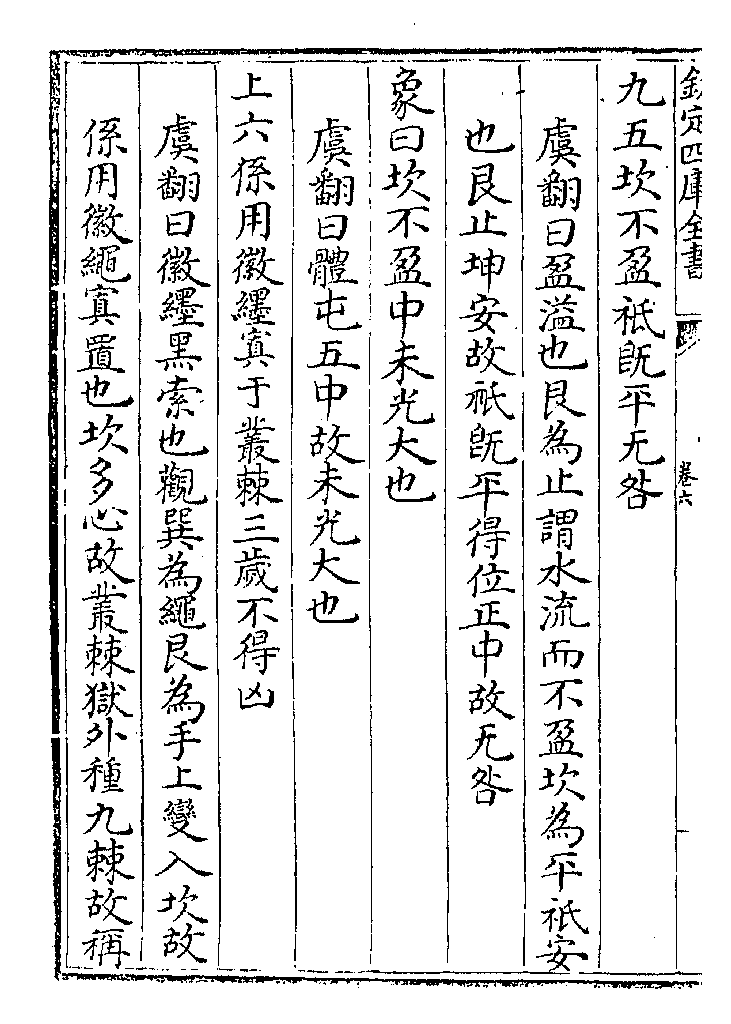 欽定四庫全書 卷六
九五坎不盈祇既平无咎
虞翻曰盈溢也艮為止謂水流而不盈坎為平祇安
也艮止坤安故祇既平得位正中故无咎
象曰坎不盈中未光大也
虞翻曰體屯五中故未光大也
上六係用徽纆寘于叢棘三歲不得凶
虞翻曰徽纆黑索也觀巽為繩艮為手上變入坎故
係用徽繩寘置也坎多心故叢棘獄外種九棘故稱